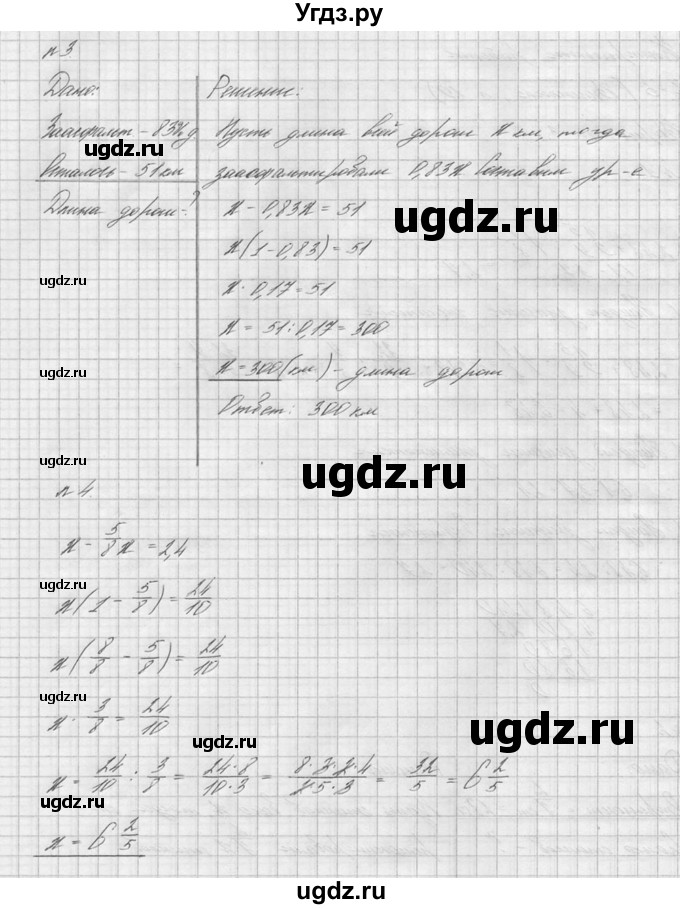 Угдз.ру
n 3
Дано: Решение:
Заасфальт - 83% д Пусть длина всей дороги x км, тогда
ugdz.ru
Осталось - 51 км заасфальтировали 0,83x Составим ур-е
Длина дороги - ? x - 0,83x = 51
ugdz.ru
x(1-0,83) = 51
ugdz.ru
x · 0,17 = 51
x = 51 : 0,17 = 300
ugdz.ru
x = 300 (км) - длина дороги
Ответ: 300 км
ugdz.ru
ugdz.ru
n 4.
x - 5/8 x = 2,4
ugdz.ru
x(1 - 5/8) = 24/10
x(8/8 - 5/8) = 24/10
ugdz.ru
x · 3/8 = 24/10
ugdz.ru
ugdz.ru
x = 24/10 : 3/8 = 24·8/10·3 = 8·3·2·4/2·5·3 = 32/5 = 6 2/5
ugdz.ru
ugdz.ru
x = 6 2/5
ugdz.ru